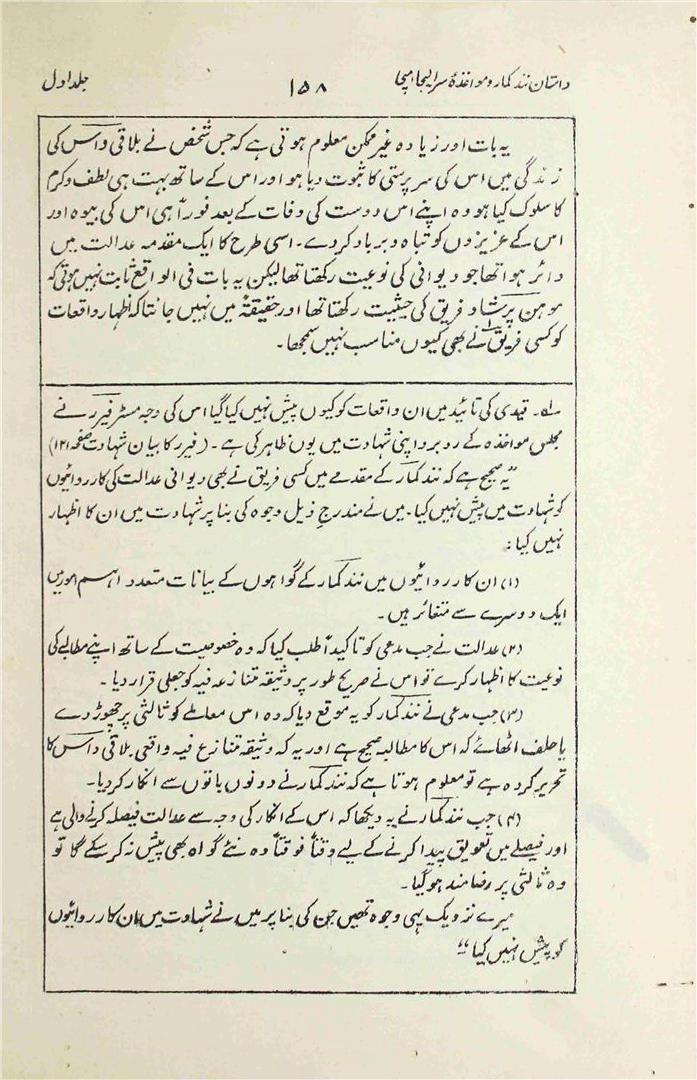 داستان نندکمار و مواخذۂ سر ایلیجا امپحا ۱۵۸ جلد اول
یہ بات اور زیادہ غیر ممکن معلوم ہوتی ہے کہ جس شخص نے بلاقی داس کی
زندگی میں اس کی سرپرستی کا ثبوت دیا ہو اور اس کے ساتھ بہت ہی لطف و کرم
کا سلوک کیا ہو وہ اپنے اس دوست کی وفات کے بعد فوراً ہی اس کی بیوہ اور
اس کے عزیزوں کو تباہ و برباد کردے۔ اسی طرح کا ایک مقدمہ عدالت میں
دائر ہوا تھا جو دیوانی کی نوعیت رکھتا تھا لیکن یہ بات فی الواقع ثابت نہیں ہوتی کہ
موہن پرشاد فریق کی حیثیت رکھتا تھا اور حقیقتۂ میں نہیں جانتا کہ اظہار واقعات
کو کسی فریق نے بھی کیوں مناسب نہیں سمجھا۔
لہ۔ قیدی کی تائید میں ان واقعات کو کیوں پیش نہیں کیا گیا اس کی وجہ مسٹر فیرر نے
مجلس مواخذہ کے روبرو اپنی شہادت میں یوں ظاہر کی ہے۔ (فیرر کا بیان شہادت صفحہ ۱۲۱)
"یہ صحیح ہے کہ نندکمار کے مقدمے میں کسی فریق نے بھی دیوانی عدالت کی کارروائیوں
کو شہادت میں پیش نہیں کیا۔ میں نے مندرج ذیل وجوہ کی بنا پر شہادت میں ان کا اظہار
نہیں کیا:
(۱) ان کارروائیوں میں نندکمار کے گواہوں کے بیانات متعدد اہم امور میں
ایک دوسرے سے متغائر ہیں۔
(۲) عدالت نے جب مدعی کو تاکیداً طلب کیا کہ وہ خصوصیت کے ساتھ اپنے مطالبے کی
نوعیت کا اظہار کرے تو اس نے صریح طور پر وثیقہ متنازعہ فیہ کو جعلی قرار دیا۔
(۳) جب مدعی نے نندکمار کو یہ موقع دیا کہ وہ اس معاملے کو ثالثی پر چھوڑ دے
یا حلف اٹھائے کہ اس کا مطالبہ صحیح ہے اور یہ کہ وثیقہ متنازع فیہ واقعی بلاقی داس کا
تحریر کردہ ہے تو معلوم ہوتا ہے کہ نندکمار نے دونوں باتوں سے انکار کردیا۔
(۴) جب نندکمار نے یہ دیکھا کہ اس کے انکار کی وجہ سے عدالت فیصلہ کرنے والی ہے
اور فیصلے میں تعویق پیدا کرنے کے لیے وقتاً فوقتاً وہ نئے گواہ بھی پیش نہ کر سکے گا تو
وہ ثالثی پر رضامند ہوگیا۔
میرے نزدیک یہی وجوہ تھیں جن کی بنا پر میں نے شہادت میں ان کارروائیوں
کو پیش نہیں کیا"